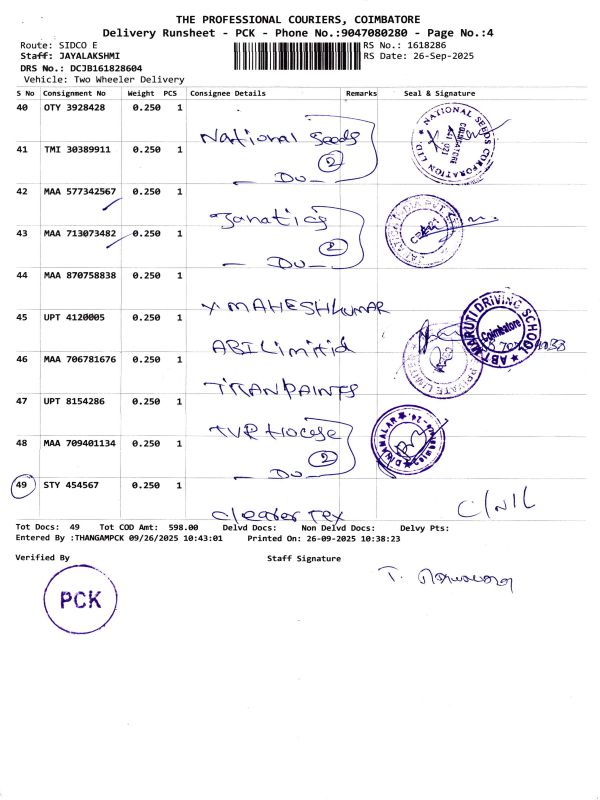 THE PROFESSIONAL COURIERS, COIMBATORE
Delivery Runsheet - PCK - Phone No.:9047080280 - Page No.:4
Route: SIDCO E RS No.: 1618286
Staff: JAYALAKSHMI RS Date: 26-Sep-2025
DRS No.: DCJB161828604
Vehicle: Two Wheeler Delivery
S No Consignment No Weight PCS Consignee Details Remarks Seal & Signature
40 OTY 3928428 0.250 1
National Seeds
NATIONAL SEEDS CORPORATION LTD.
COIMBATORE
641 021
41 TMI 30389911 0.250 1
2
Du
42 MAA 577342567 0.250 1
43 MAA 713073482 0.250 1
2
Du
44 MAA 870758838 0.250 1
Y. MAHESHKUMAR
45 UPT 4120005 0.250 1
ABI Limitid
ABT MARUTI DRIVING SCHOOL
Coimbatore
46 MAA 706781676 0.250 1
TITAN PAINTS
PRIVATE LIMITED
47 UPT 8154286 0.250 1
48 MAA 709401134 0.250 1
2
Du
DINAMALAR
49 STY 454567 0.250 1
Tex
Tot Docs: 49 Tot COD Amt: 598.00 Delvd Docs: Non Delvd Docs: Delvy Pts:
Entered By :THANGAMPCK 09/26/2025 10:43:01 Printed On: 26-09-2025 10:38:23
Verified By Staff Signature
PCK